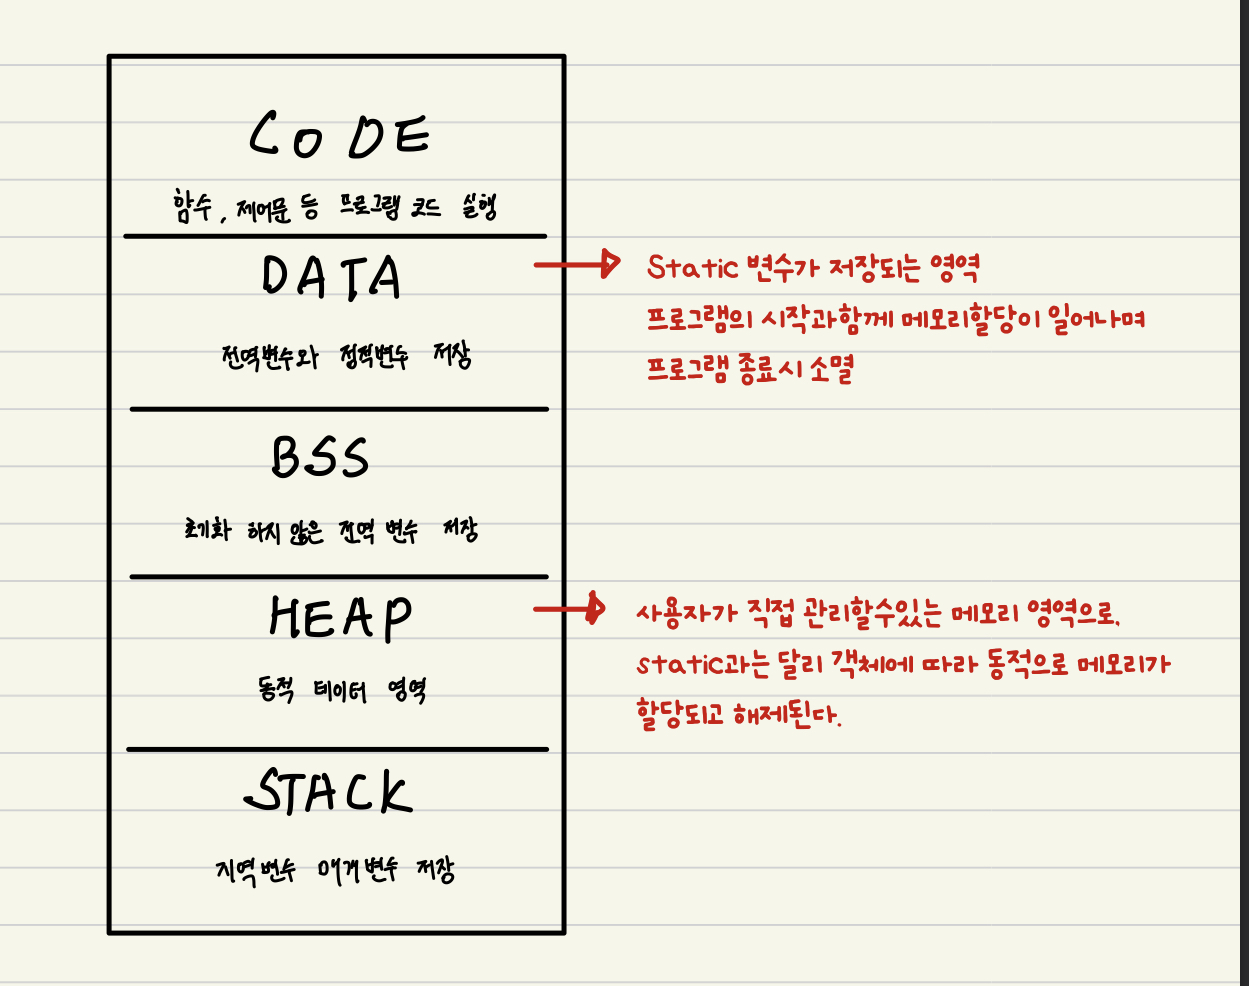 CODE
함수, 제어문 등 프로그램 코드 실행
DATA
전역변수와 정적변수 저장
Static 변수가 저장되는 영역
프로그램의 시작과함께 메모리할당이 일어나며
프로그램 종료시 소멸
BSS
초기화 하지 않은 전역 변수 저장
HEAP
동적 데이터 영역
사용자가 직접 관리할수있는 메모리 영역으로,
static과는 달리 객체에 따라 동적으로 메모리가
할당되고 해제된다.
STACK
지역변수 매개변수 저장